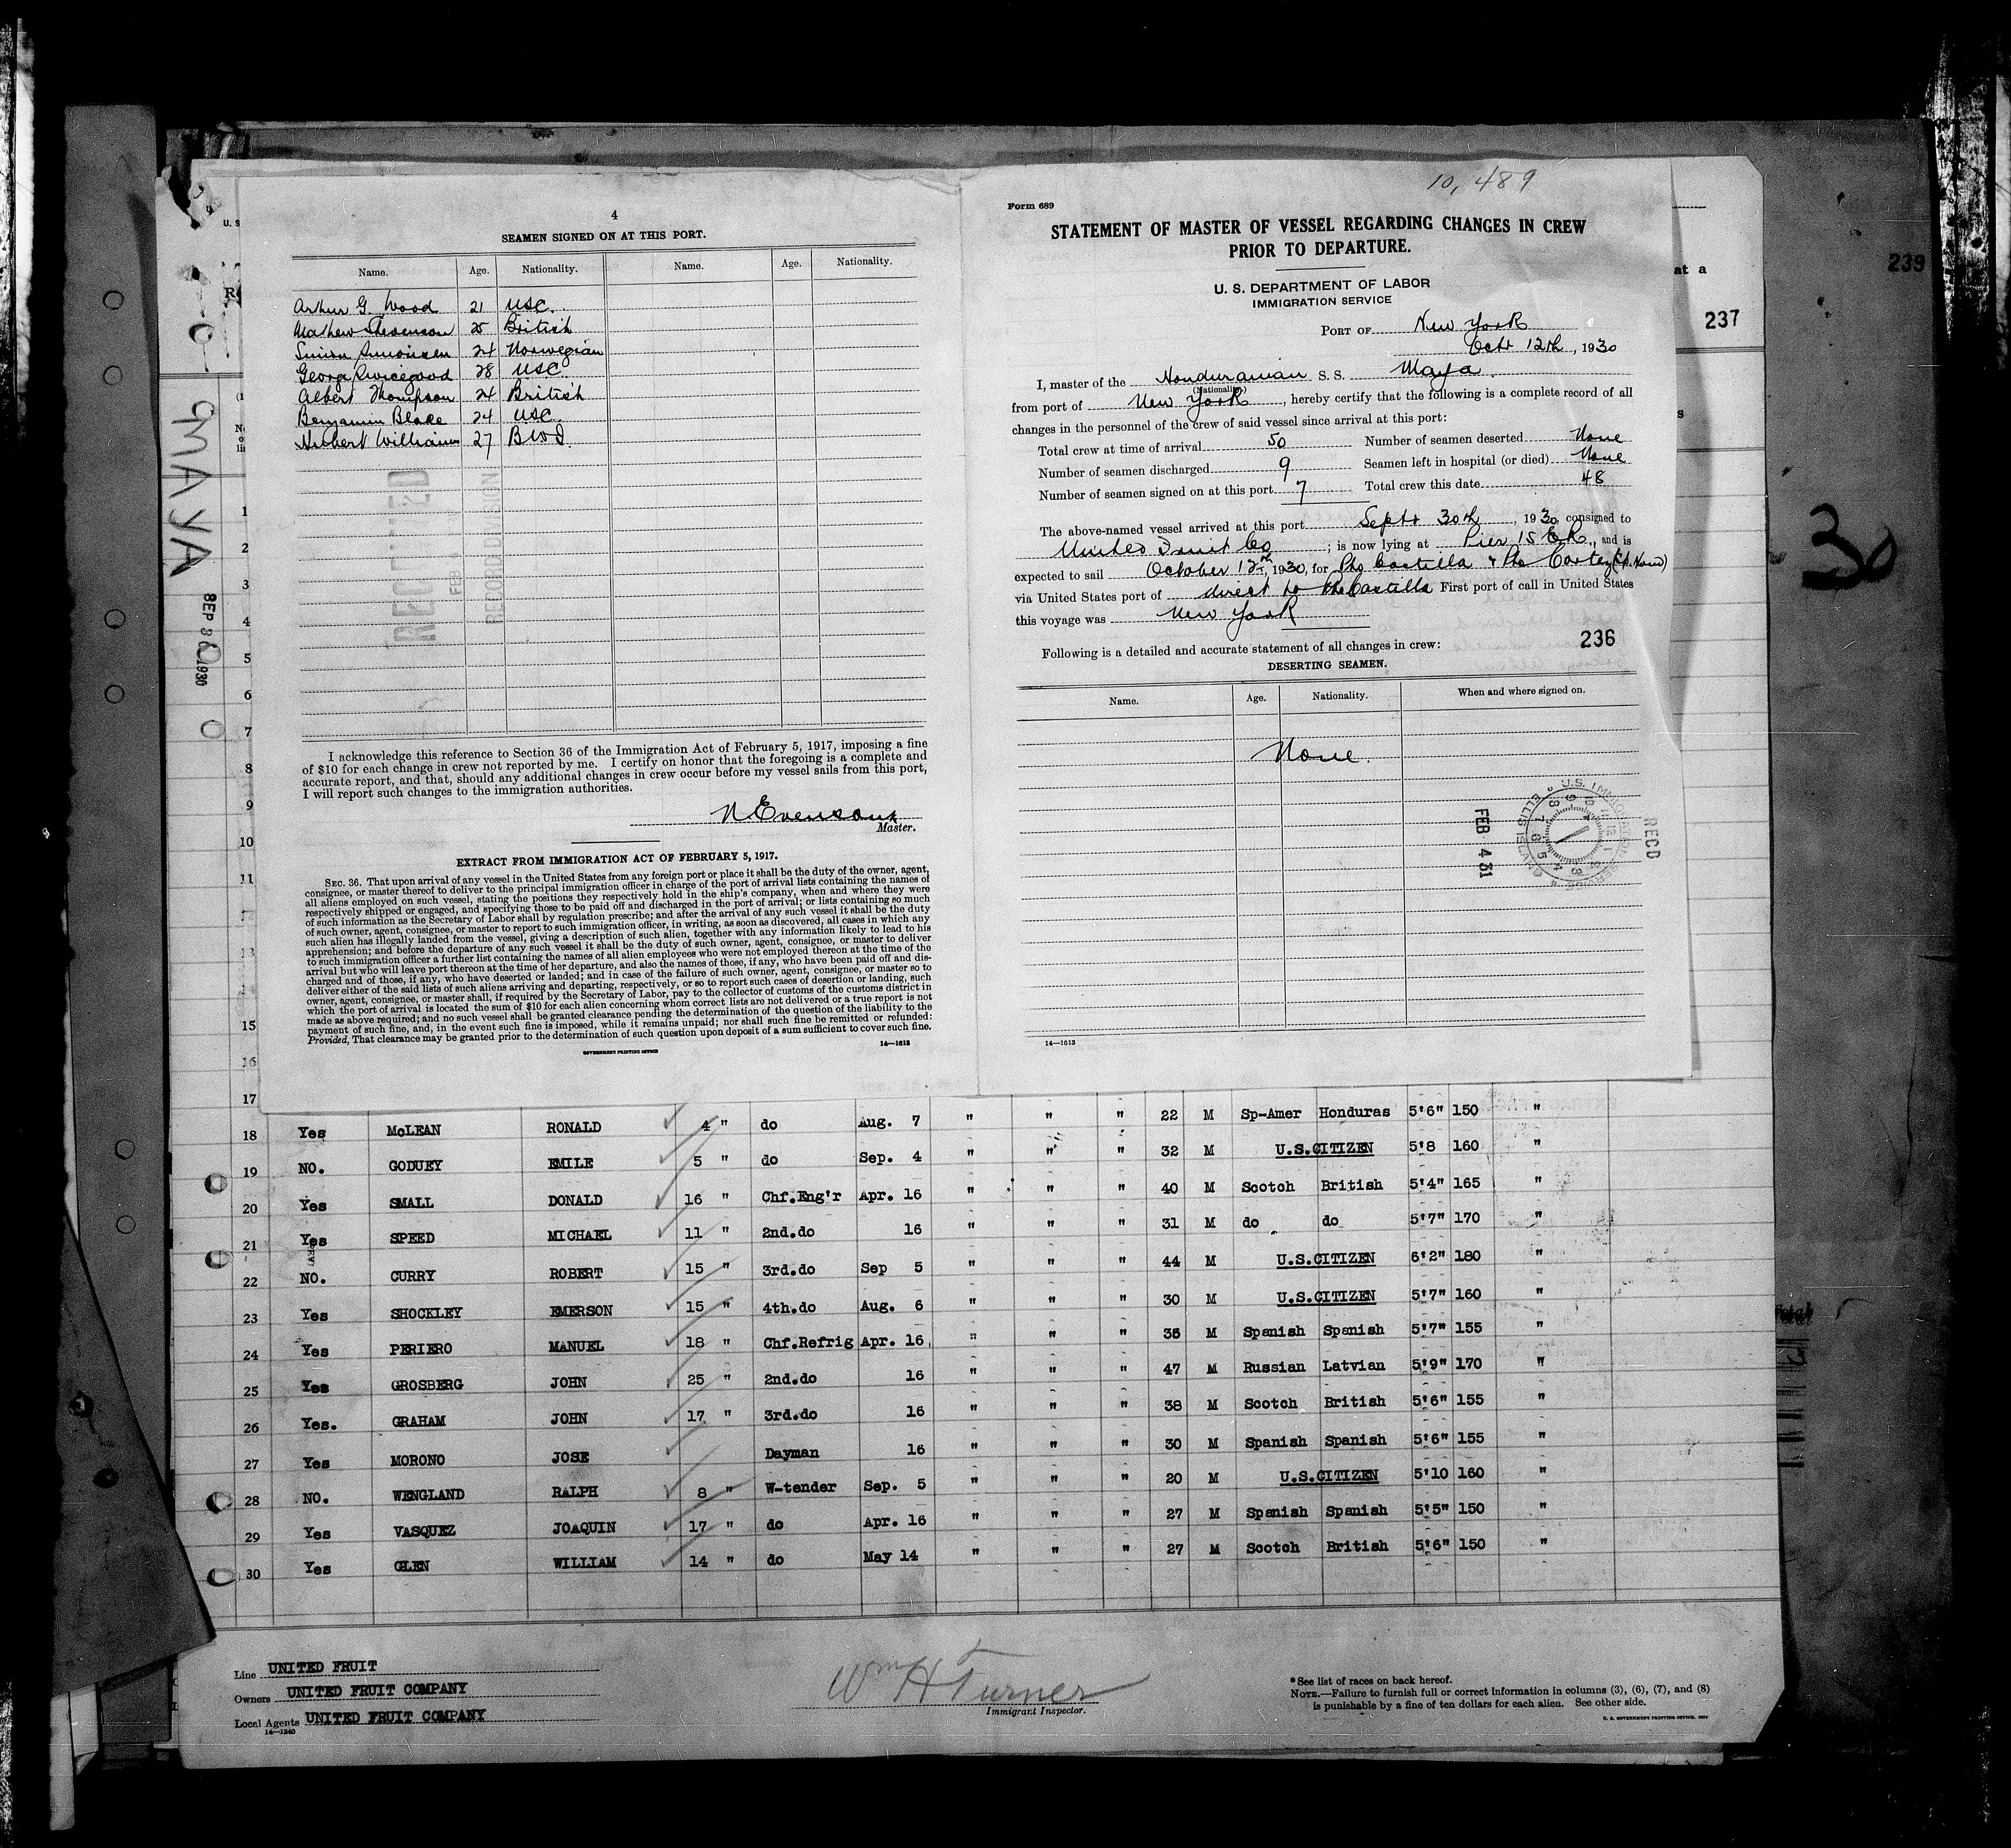 10,489
4
SEAMEN SIGNED ON AT THIS PORT.
Name. Age. Nationality. Name. Age. Nationality.
Arthur G. Wood 21 USC.
Mathew Stevenson 25 British
Simonsen 24 Norwegian
George Swicegood 28 USC.
Albert Thompson 24 British
Benjamin Blake 24 USC.
Hubert Williams 27 BWI
RECEIVED
FEB
RECORD DIVISION
I acknowledge this reference to Section 36 of the Immigration Act of February 5, 1917, imposing a fine
of $10 for each change in crew not reported by me. I certify on honor that the foregoing is a complete and
accurate report, and that, should any additional changes in crew occur before my vessel sails from this port,
I will report such changes to the immigration authorities.
N Evensen
Master.
EXTRACT FROM IMMIGRATION ACT OF FEBRUARY 5, 1917.
SEC. 36. That upon arrival of any vessel in the United States from any foreign port or place it shall be the duty of the owner, agent,
consignee, or master thereof to deliver to the principal immigration officer in charge of the port of arrival lists containing the names of
all aliens employed on such vessel, stating the positions they respectively hold in the ship's company, when and where they were
respectively shipped or engaged, and specifying those to be paid off and discharged in the port of arrival; or lists containing so much
of such information as the Secretary of Labor shall by regulation prescribe; and after the arrival of any such vessel it shall be the duty
of such owner, agent, consignee, or master to report to such immigration officer, in writing, as soon as discovered, all cases in which any
such alien has illegally landed from the vessel, giving a description of such alien, together with any information likely to lead to his
apprehension; and before the departure of any such vessel it shall be the duty of such owner, agent, consignee, or master to deliver
to such immigration officer a further list containing the names of all alien employees who were not employed thereon at the time of the
arrival but who will leave port thereon at the time of her departure, and also the names of those, if any, who have been paid off and dis-
charged and of those, if any, who have deserted or landed; and in case of the failure of such owner, agent, consignee, or master so to
deliver either of the said lists of such aliens arriving and departing, respectively, or so to report such cases of desertion or landing, such
owner, agent, consignee, or master shall, if required by the Secretary of Labor, pay to the collector of customs of the customs district in
which the port of arrival is located the sum of $10 for each alien concerning whom correct lists are not delivered or a true report is not
made as above required; and no such vessel shall be granted clearance pending the determination of the question of the liability to the
payment of such fine, and, in the event such fine is imposed, while it remains unpaid; nor shall such fine be remitted or refunded:
Provided, That clearance may be granted prior to the determination of such question upon deposit of a sum sufficient to cover such fine.
GOVERNMENT PRINTING OFFICE
14—1613
Form 689
STATEMENT OF MASTER OF VESSEL REGARDING CHANGES IN CREW
PRIOR TO DEPARTURE.
U. S. DEPARTMENT OF LABOR
IMMIGRATION SERVICE
PORT OF New York
Oct 12th, 1930
I, master of the Honduranian S. S. Maya.
(Nationality)
from port of New York, hereby certify that the following is a complete record of all
changes in the personnel of the crew of said vessel since arrival at this port:
Total crew at time of arrival 50 Number of seamen deserted None
Number of seamen discharged 9 Seamen left in hospital (or died) None
Number of seamen signed on at this port 7 Total crew this date 48
The above-named vessel arrived at this port Sept 30th, 1930, consigned to
United Fruit Co; is now lying at Pier 15 E.R., and is
expected to sail October 12th, 1930, for Pto Castilla & Pto Cortez (Sp. Hond)
via United States port of direct to Pto Castilla First port of call in United States
this voyage was New York
236
Following is a detailed and accurate statement of all changes in crew:
DESERTING SEAMEN.
Name. Age. Nationality. When and where signed on.
None.
FEB 4 31
U.S. IMMIGRATION SERVICE ELLIS IS
REC'D
14—1613
at a
237
239
30
U. S
MAYA
SEP 30 1930
1
2
3
4
5
6
7
8
9
10
11
12
13
15
16
17
18 Yes McLEAN RONALD 4 " do Aug. 7 " " " 22 M Sp-Amer Honduras 5'6" 150 "
19 NO. GODUEY EMILE 5 " do Sep. 4 " " " 32 M U.S.CITIZEN 5'8 160 "
20 Yes SMALL DONALD 16 " Chf.Eng'r Apr. 16 " " " 40 M Scotch British 5'4" 165 "
21 Yes SPEED MICHAEL 11 " 2nd.do 16 " " " 31 M do do 5'7" 170 "
22 NO. CURRY ROBERT 15 " 3rd.do Sep 5 " " " 44 M U.S.CITIZEN 6'2" 180 "
23 Yes SHOCKLEY EMERSON 15 " 4th.do Aug. 6 " " " 30 M U.S.CITIZEN 5'7" 160 "
24 Yes PERIERO MANUEL 18 " Chf.Refrig Apr. 16 " " " 36 M Spanish Spanish 5'7" 155 "
25 Yes GROSBERG JOHN 25 " 2nd.do 16 " " " 47 M Russian Latvian 5'9" 170 "
26 Yes. GRAHAM JOHN 17 " 3rd.do 16 " " " 38 M Scotch British 5'6" 155 "
27 Yes MORONO JOSE Dayman 16 " " " 30 M Spanish Spanish 5'6" 155 "
28 NO. WENGLAND RALPH 8 " W-tender Sep. 5 " " " 20 M U.S.CITIZEN 5'10 160 "
29 Yes VASQUEZ JOAQUIN 17 " do Apr. 16 " " " 27 M Spanish Spanish 5'5" 150 "
30 Yes GLEN WILLIAM 14 " do May 14 " " " 27 M Scotch British 5'6" 150 "
Line UNITED FRUIT
Owners UNITED FRUIT COMPANY
Local Agents UNITED FRUIT COMPANY
14—1240
Wm H Turner
Immigrant Inspector.
*See list of races on back hereof.
NOTE.—Failure to furnish full or correct information in columns (3), (6), (7), and (8)
is punishable by a fine of ten dollars for each alien. See other side.
U. S. GOVERNMENT PRINTING OFFICE